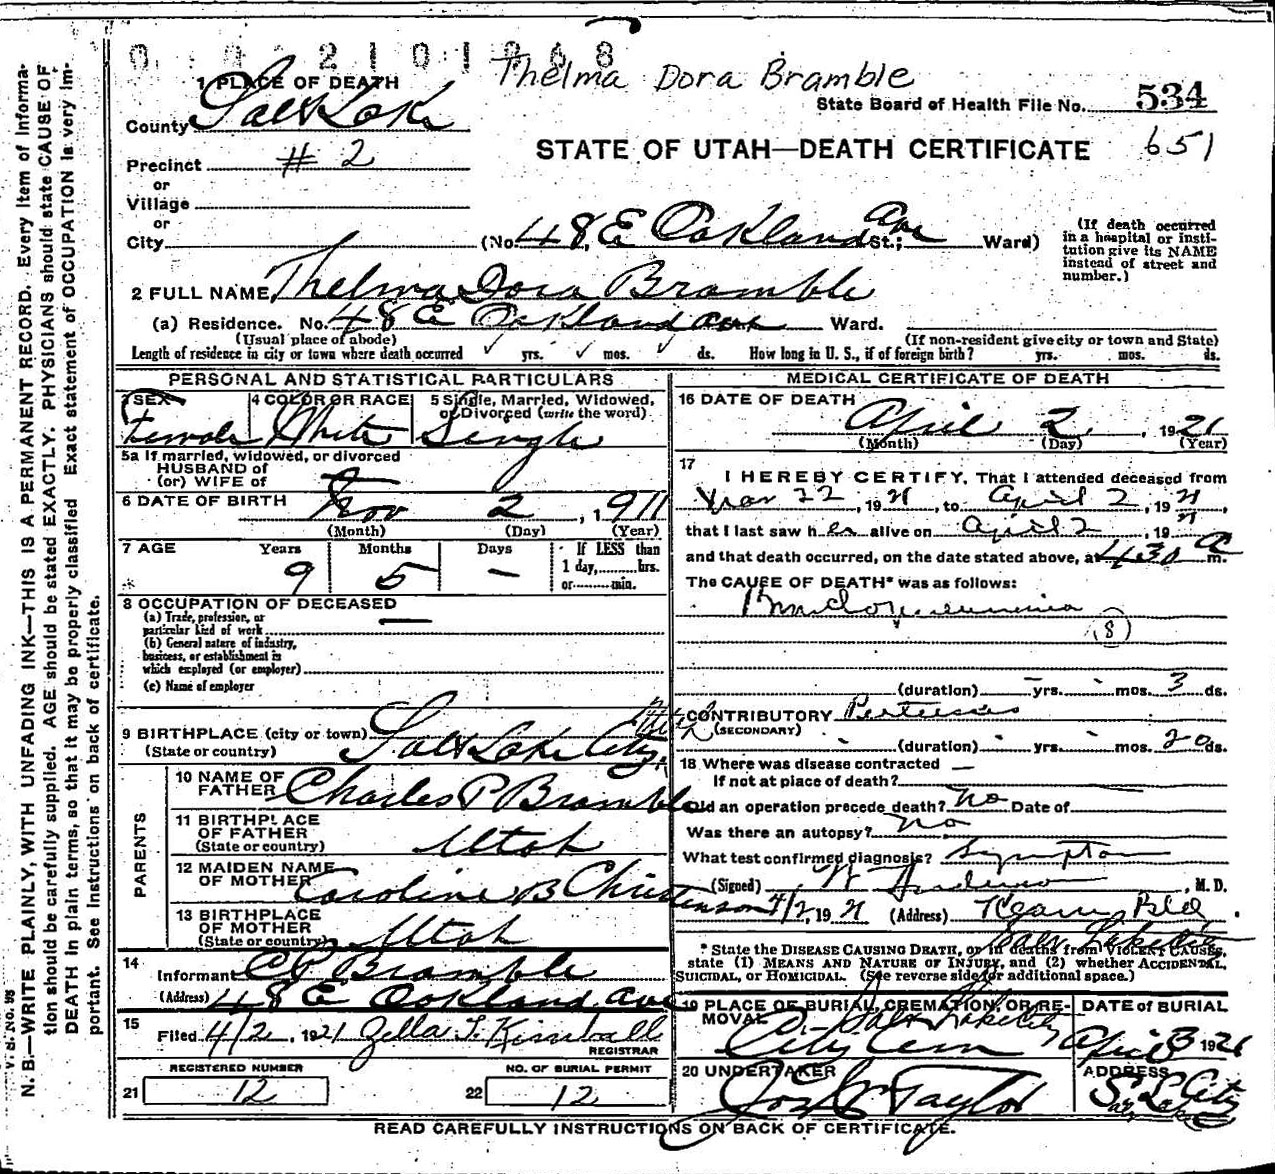 Thelma Dora Bramble
1 PLACE OF DEATH
State Board of Health File No. 534
County Salt Lake
STATE OF UTAH—DEATH CERTIFICATE 651
Precinct # 2
or
Village
or
City (No. 48 E Oakland Ave St.; Ward)
(If death occurred in a hospital or institution give its NAME instead of street and number.)
2 FULL NAME Thelma Dora Bramble
(a) Residence. No. 48 E Oakland Ave Ward.
(Usual place of abode) (If non-resident give city or town and State)
Length of residence in city or town where death occurred yrs. mos. ds. How long in U. S., if of foreign birth? yrs. mos. ds.
PERSONAL AND STATISTICAL PARTICULARS
3 SEX 4 COLOR OR RACE 5 Single, Married, Widowed, or Divorced (write the word)
Female White Single
5a If married, widowed, or divorced
HUSBAND of
(or) WIFE of
6 DATE OF BIRTH Nov 2, 1911
(Month) (Day) (Year)
7 AGE Years Months Days If LESS than
1 day, hrs.
or min.
9 5 —
8 OCCUPATION OF DECEASED
(a) Trade, profession, or
particular kind of work —
(b) General nature of industry,
business, or establishment in
which employed (or employer)
(c) Name of employer
9 BIRTHPLACE (city or town) Salt Lake City, Utah
(State or country)
PARENTS
10 NAME OF FATHER Charles P Bramble
11 BIRTHPLACE OF FATHER Utah
(State or country)
12 MAIDEN NAME OF MOTHER Caroline B Christenson
13 BIRTHPLACE OF MOTHER Utah
(State or country)
14 Informant C P Bramble
(Address) 48 E Oakland Ave
15 Filed 4/2, 1921 Zella T. Kimball
REGISTRAR
REGISTERED NUMBER NO. OF BURIAL PERMIT
21 12 22 12
MEDICAL CERTIFICATE OF DEATH
16 DATE OF DEATH
April 2, 1921
(Month) (Day) (Year)
17
I HEREBY CERTIFY, That I attended deceased from
Mar 22, 1921, to April 2, 1921,
that I last saw her alive on April 2, 1921
and that death occurred, on the date stated above, at 430 a m.
The CAUSE OF DEATH* was as follows:
Bronchopneumonia
(8)
(duration) yrs. mos. 3 ds.
CONTRIBUTORY Pertussis
(SECONDARY)
(duration) yrs. mos. 20 ds.
18 Where was disease contracted —
If not at place of death?
Did an operation precede death? No Date of
Was there an autopsy? No
What test confirmed diagnosis? Symptom
(Signed) , M. D.
4/2, 1921 (Address) Bld.
Salt Lake City
* State the DISEASE CAUSING DEATH, or in deaths from VIOLENT CAUSES,
state (1) MEANS AND NATURE OF INJURY, and (2) whether ACCIDENTAL,
SUICIDAL, or HOMICIDAL. (See reverse side for additional space.)
19 PLACE OF BURIAL, CREMATION, OR REMOVAL DATE of BURIAL
Salt Lake City
City Cem April 3 1921
20 UNDERTAKER ADDRESS
Jos Wm Taylor S. L. City
READ CAREFULLY INSTRUCTIONS ON BACK OF CERTIFICATE.
V. S. NO. 98
N. B.—WRITE PLAINLY, WITH UNFADING INK—THIS IS A PERMANENT RECORD. Every item of Informa-
tion should be carefully supplied. AGE should be stated EXACTLY. PHYSICIANS should state CAUSE OF
DEATH in plain terms, so that it may be properly classified. Exact statement of OCCUPATION is very im-
portant. See Instructions on back of certificate.